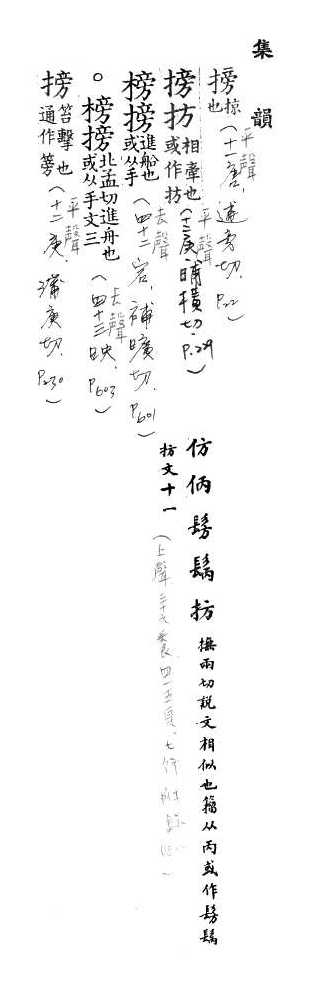 集韻
搒掠也(平聲十一唐,逋旁切,P.22)
搒抃相牽也或作抃(平聲十二庚,晡橫切,P.229)
榜搒進船也或从手(去聲四十二宕,補曠切,P601)
○榜搒北孟切進舟也或从手文三(去聲四十三映,P603)
搒笞擊也通作篣(平聲十二庚,蒲庚切,P230)
仿俩髣髴抃撫兩切說文相似也籀从丙或作髣髴
抃文十一(上聲三十六養